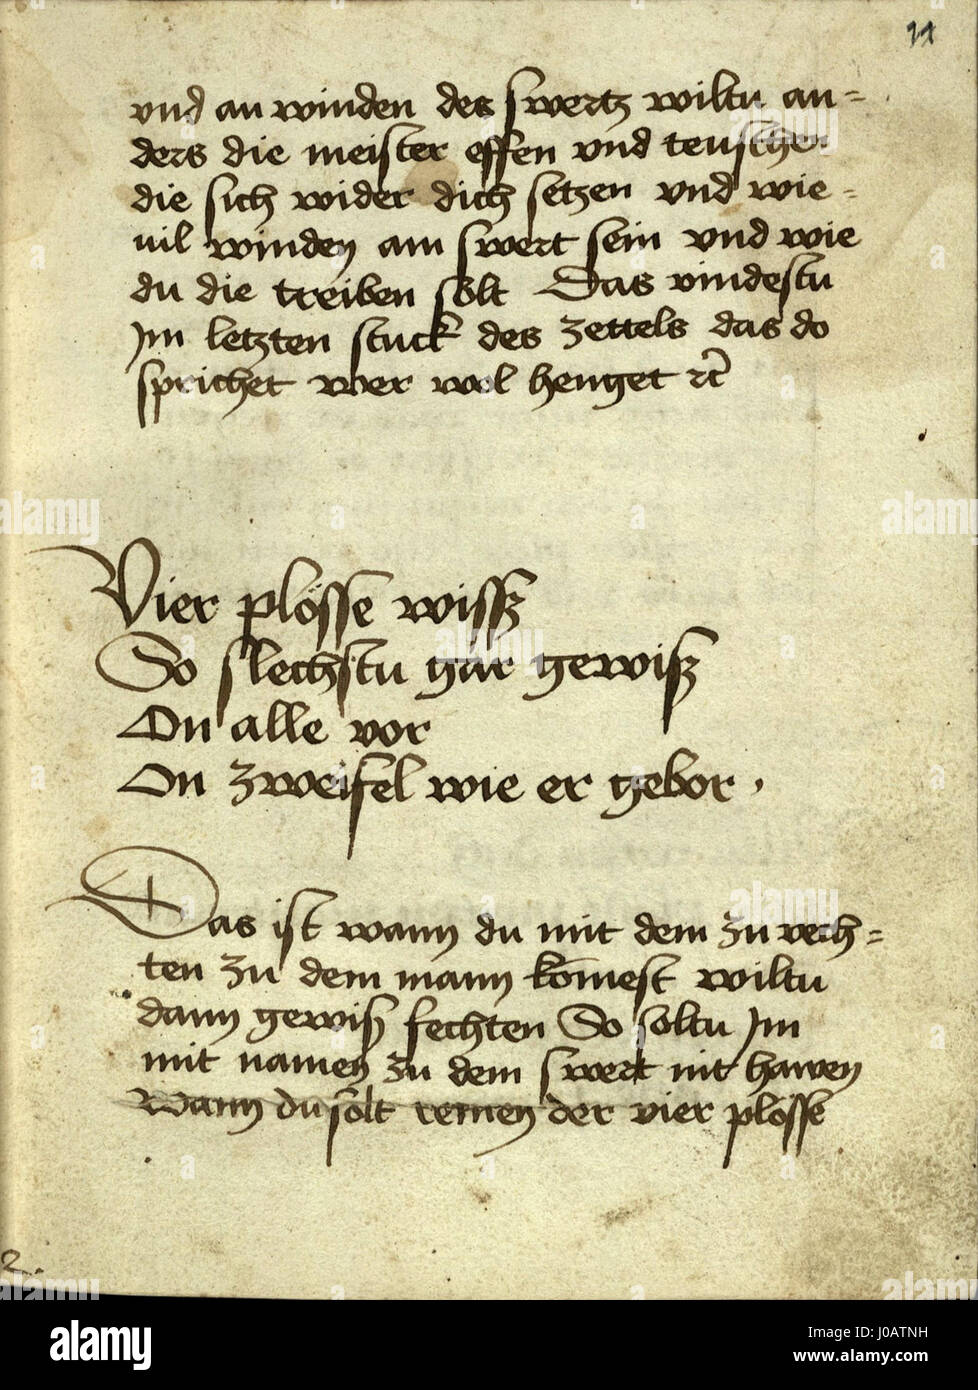 11
vnd an winden des swertz wiltu an=
ders die meister effen vnd teuschen
die sich wider dich setzen vnd wie=
uil winden am swert sein vnd wie
du die treiben solt Das vindestu
Im letzten stuck des zettels das do
sprichet wer wol henget rc̄
Vier plösse wissz
So slechstu gar gewisz
On alle vor
On zweifel wie er gebor .
Das ist wann du mit dem zu vech=
ten zu dem mann komest wiltu
dann gewisz fechten So soltu Im
mit namen zu dem swert nit hawen
Wann du solt remen der vier plösse
2.
alamy
Image ID: J0ATNH
www.alamy.com